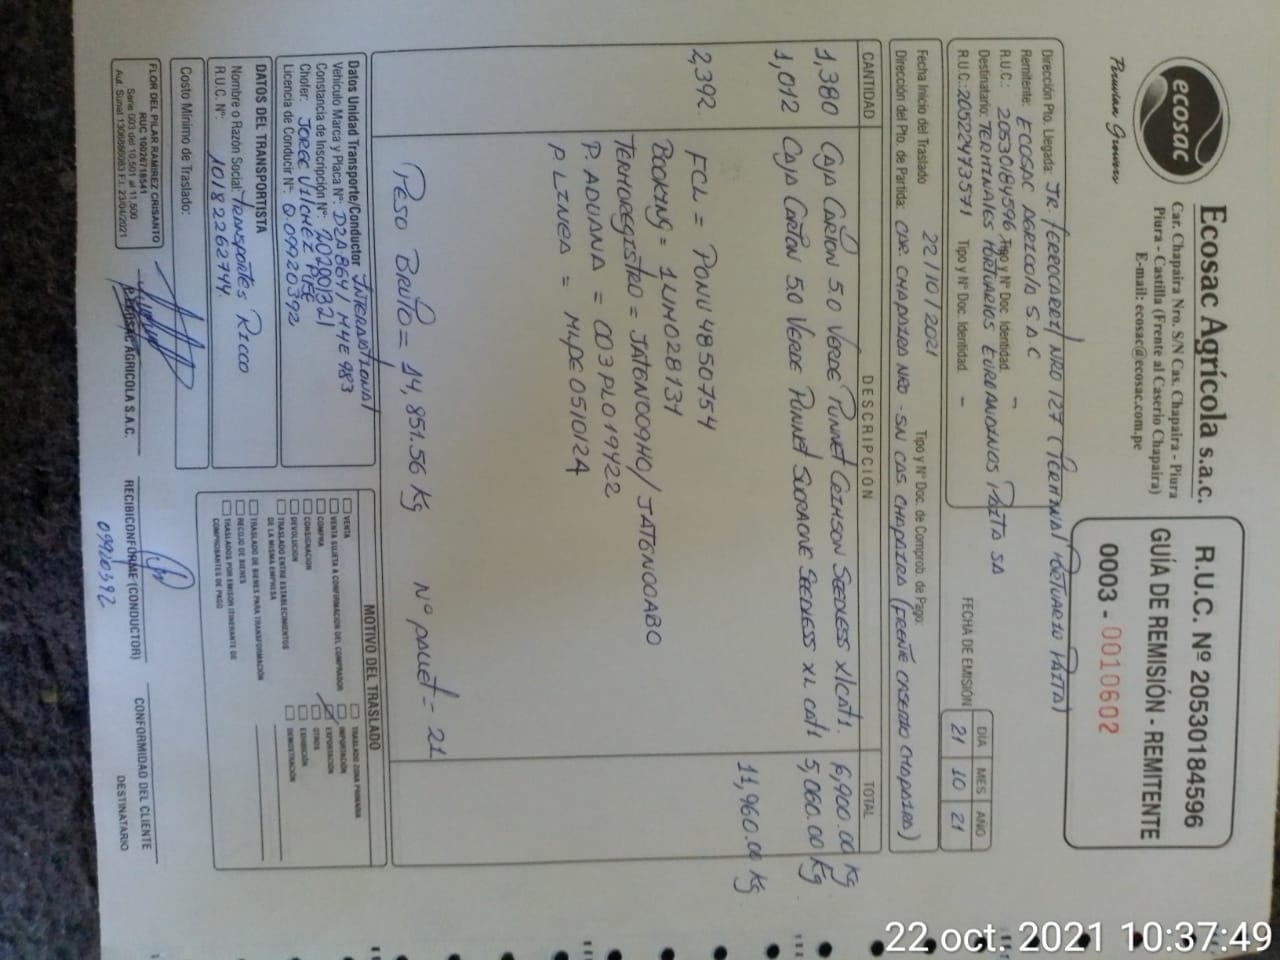 ecosac
Peruvian Growers
Ecosac Agrícola s.a.c.
Car. Chapaira Nro. S/N Cas. Chapaira - Piura
Piura - Castilla (Frente al Caserio Chapaira)
E-mail: ecosac@ecosac.com.pe
R.U.C. Nº 20530184596
GUÍA DE REMISIÓN - REMITENTE
0003 - 0010602
Dirección Pto. Llegada: JR. FERROCARRIL NRO 127 (TERMINAL PORTUARIO PAITA)
Remitente: ECOSAC AGRICOLA S A C
R.U.C.: 20530184596 Tipo y N° Doc. Identidad. -
Destinatario: TERMINALES PORTUARIOS EUROANDINOS PAITA SA
R.U.C.: 20522473571 Tipo y N° Doc. Identidad. -
FECHA DE EMISIÓN
DIA MES AÑO
21 10 21
Fecha Inicio del Traslado 22/10/2021 Tipo y N° Doc. de Comprob. de Pago:
Dirección del Pto. de Partida: CAR. CHAPAIRA NRO - SN CAS CHAPAIRA (FRENTE CASERIO CHAPAIRA)
CANTIDAD DESCRIPCIÓN TOTAL
1,380 Caja Carton 5.0 Verde Punnet Crimson Seedless XL cat1. 6,900.00 kg
1,012 Caja Carton 5.0 Verde Punnet Sugraone Seedless XL cat1 5,060.00 Kg
11,960.00 Kg
2,392.
FCL = PONU 4850754
BOOKING = 1LIM028131
TERMOREGISTRO = JAT6N009H0 / JAT6N00AB0
P. ADUANA = 003PL019422
P LINEA = MLPE0510124
PESO BRUTO = 14,851.56 Kg N° pallet = 21
Datos Unidad Transporte/Conductor INTERNATIONAL
Vehículo Marca y Placa N°: D2A864/ M4E 983
Constancia de Inscripción N°: 202001321
Chofer: JORGE VILCHEZ
Licencia de Conducir N°: Q.09920392
DATOS DEL TRANSPORTISTA
Nombre o Razón Social: TRANSPORTES RICCO
R.U.C. N°: 10182262744
Costo Mínimo de Traslado:
MOTIVO DEL TRASLADO
VENTA
VENTA SUJETA A CONFORMACIÓN DEL COMPRADOR
COMPRA
CONSIGNACIÓN
DEVOLUCIÓN
TRASLADO ENTRE ESTABLECIMIENTOS
DE LA MISMA EMPRESA
TRASLADO DE BIENES PARA TRANSFORMACIÓN
RECOJO DE BIENES
TRASLADOS POR EMISOR ITINERANTE DE
COMPROBANTES DE PAGO
TRASLADO ZONA PRIMARIA
IMPORTACIÓN
EXPORTACIÓN
OTROS
EXHIBICIÓN
DEMOSTRACIÓN
FLOR DEL PILAR RAMIREZ CRISANTO
RUC 10026718541
Serie 003 del 10,501 al 11,500
P. ECOSAC AGRICOLA S.A.C.
RECIBI CONFORME (CONDUCTOR)
09920392
CONFORMIDAD DEL CLIENTE
DESTINATARIO
22 oct. 2021 10:37:49